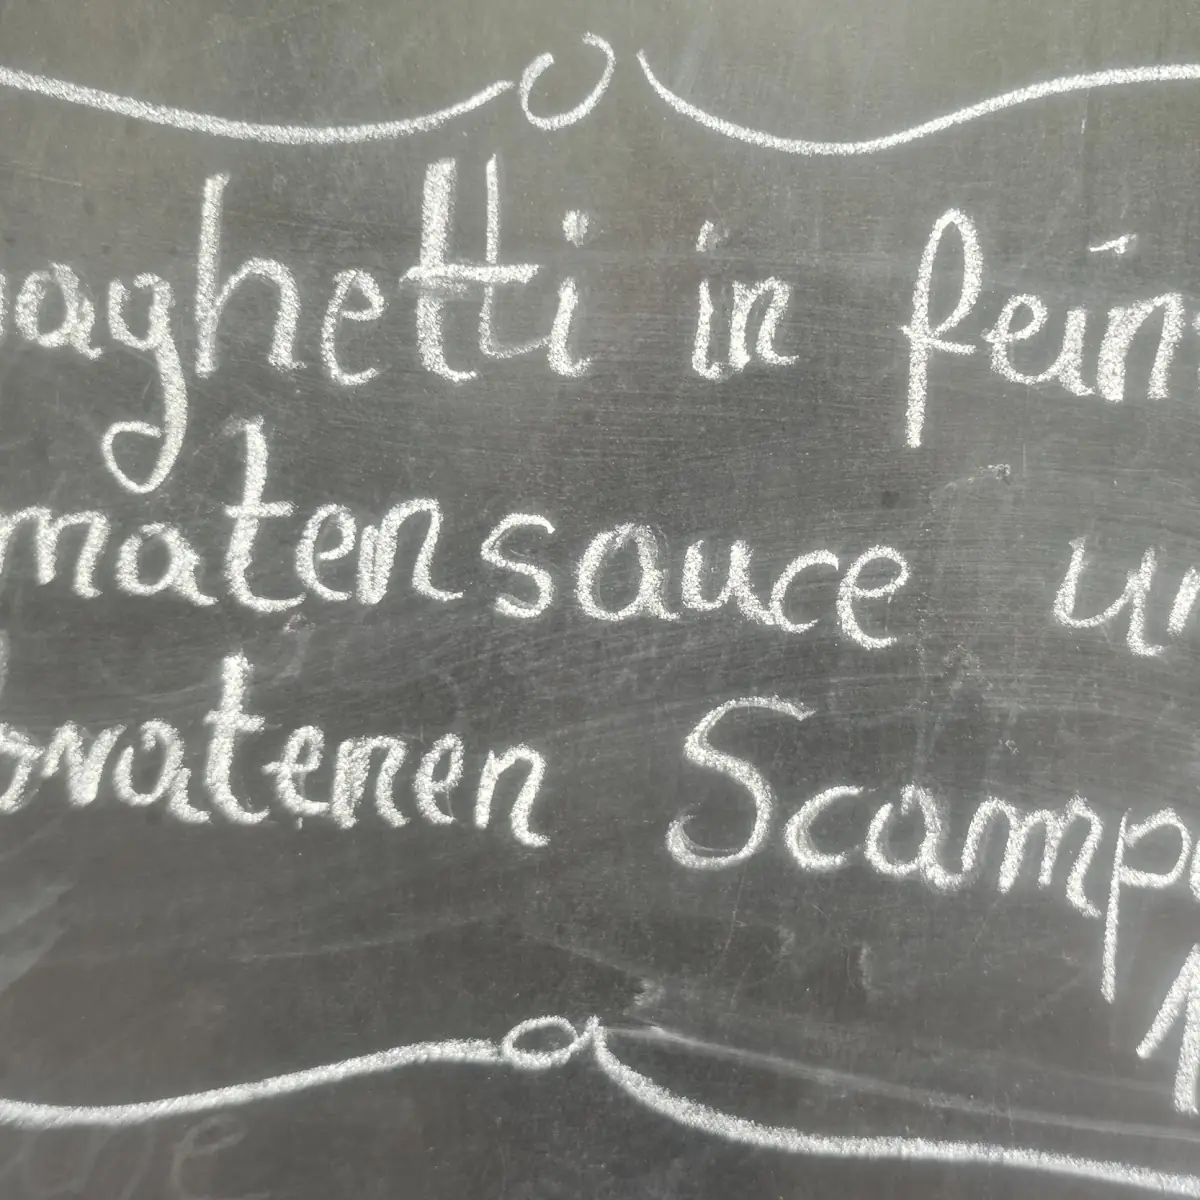 paghetti in fein
matensauce un
bratenen Scamp
1